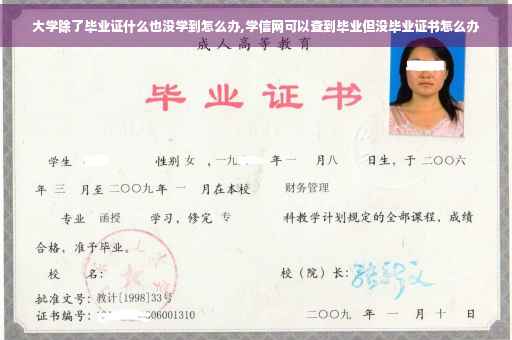 大学除了毕业证什么也没学到怎么办,学信网可以查到毕业但没毕业证书怎么办
成人高等教育
毕业证书
学生 性别 女 ,一九 年 一 月八 日生，于 二〇〇六
年 三 月至 二〇〇九年 一 月在本校 财务管理
专业 函授 学习，修完 专 科教学计划规定的全部课程，成绩
合格，准予毕业。
校 名： 校（院）长：
批准文号：教计[1998]33号
证书编号： 06001310 二〇〇九 年 一 月 十 日